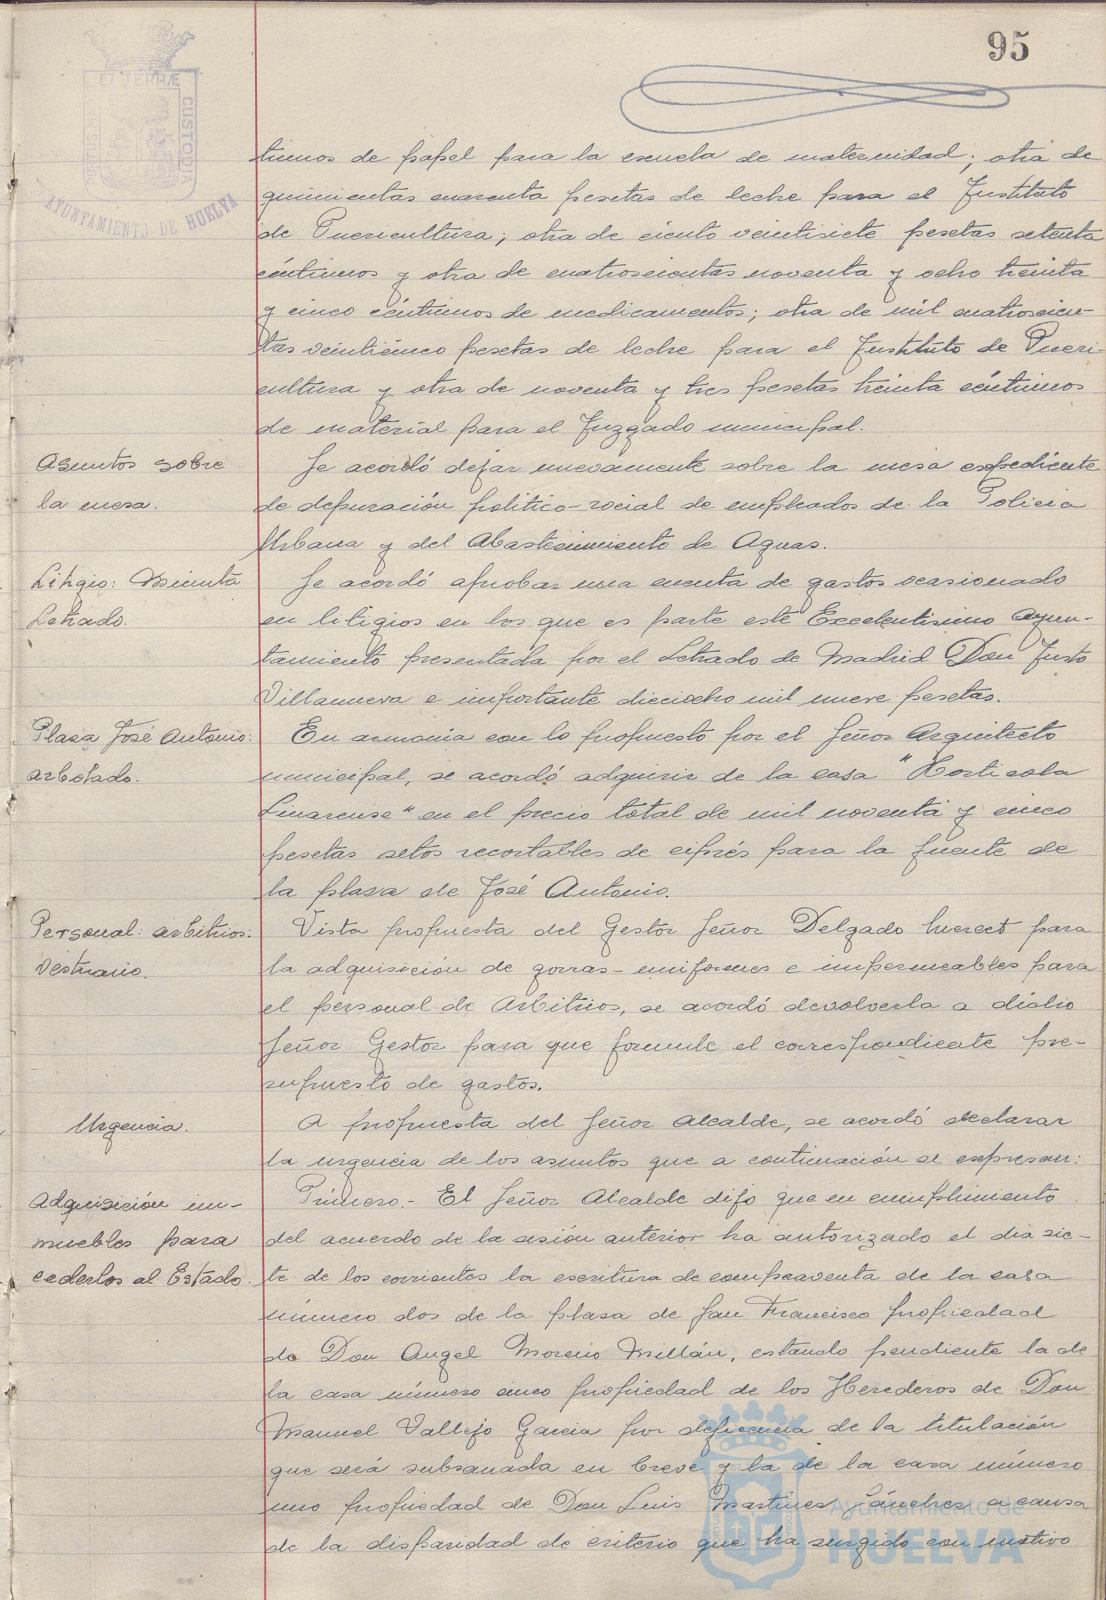 95
PORTUS MARIS ET TERRÆ CUSTODIA
AYUNTAMIENTO DE HUELVA
timos de papel para la escuela de maternidad; otra de
quinientas cuarenta pesetas de leche para el Instituto
de Puericultura; otra de ciento veintisiete pesetas setenta
céntimos y otra de cuatrocientas noventa y ocho treinta
y cinco céntimos de medicamentos; otra de mil cuatrocien-
tas veinticinco pesetas de leche para el Instituto de Pueri-
cultura y otra de noventa y tres pesetas treinta céntimos
de material para el Juzgado municipal.
Asuntos sobre
la mesa.
Se acordó dejar nuevamente sobre la mesa expediente
de depuración politico-social de empleados de la Policia
Urbana y del Abastecimiento de Aguas.
Litigio: Minuta
Letrado.
Se acordó aprobar una cuenta de gastos ocasionado
en litigios en los que es parte este Excelentisimo Ayun-
tamiento presentada por el Letrado de Madrid Don Justo
Villanueva e importante dieciocho mil nueve pesetas.
Plasa José Antonio:
arbolado.
En armonia con lo propuesto por el Señor Arquitecto
municipal, se acordó adquirir de la casa "Horticola
Linarense" en el precio total de mil noventa y cinco
pesetas setos recortables de ciprés para la fuente de
la plasa de José Antonio.
Personal: arbitrios:
Vestuario.
Vista propuesta del Gestor Señor Delgado para
la adquisición de gorras-uniformes e impermeables para
el personal de Arbitrios, se acordó devolverla a dicho
Señor Gestor para que formule el correspondiente pre-
supuesto de gastos.
Urgencia.
A propuesta del Señor Alcalde, se acordó declarar
la urgencia de los asuntos que a continuación se expresan:
Adquisición in-
muebles para
cederlos al Estado.
Primero.- El Señor Alcalde dijo que en cumplimiento
del acuerdo de la sesión anterior ha autorizado el dia sie-
te de los corrientes la escritura de compraventa de la casa
número dos de la plasa de San Francisco propiedad
de Don Angel Moreno Millán, estando pendiente la de
la casa número cinco propiedad de los Herederos de Don
Manuel Vallejo Garcia por deficiencia de la titulación
que será subsanada en breve y la de la casa número
uno propiedad de Don Luis Martines Sánches a causa
de la disparidad de criterio que ha surgido con motivo
Ayuntamiento de
HUELVA